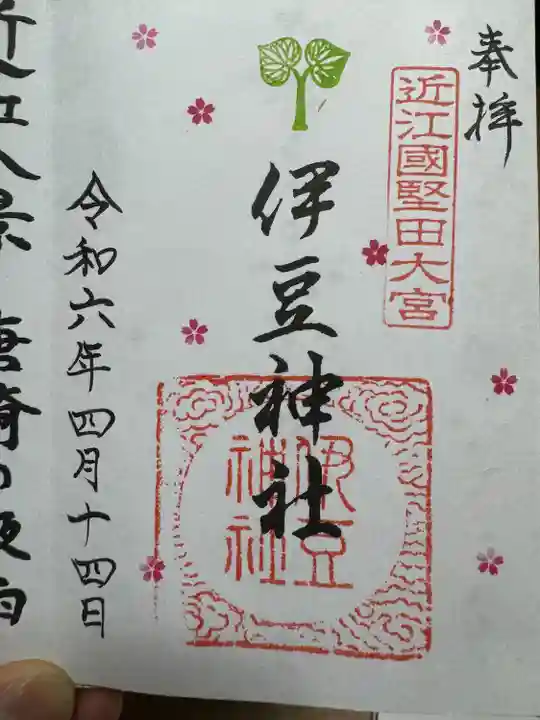 奉拝
近江國堅田大宮
伊豆神社
伊豆
神社
令和六年四月十四日
近江八景 唐崎の夜雨